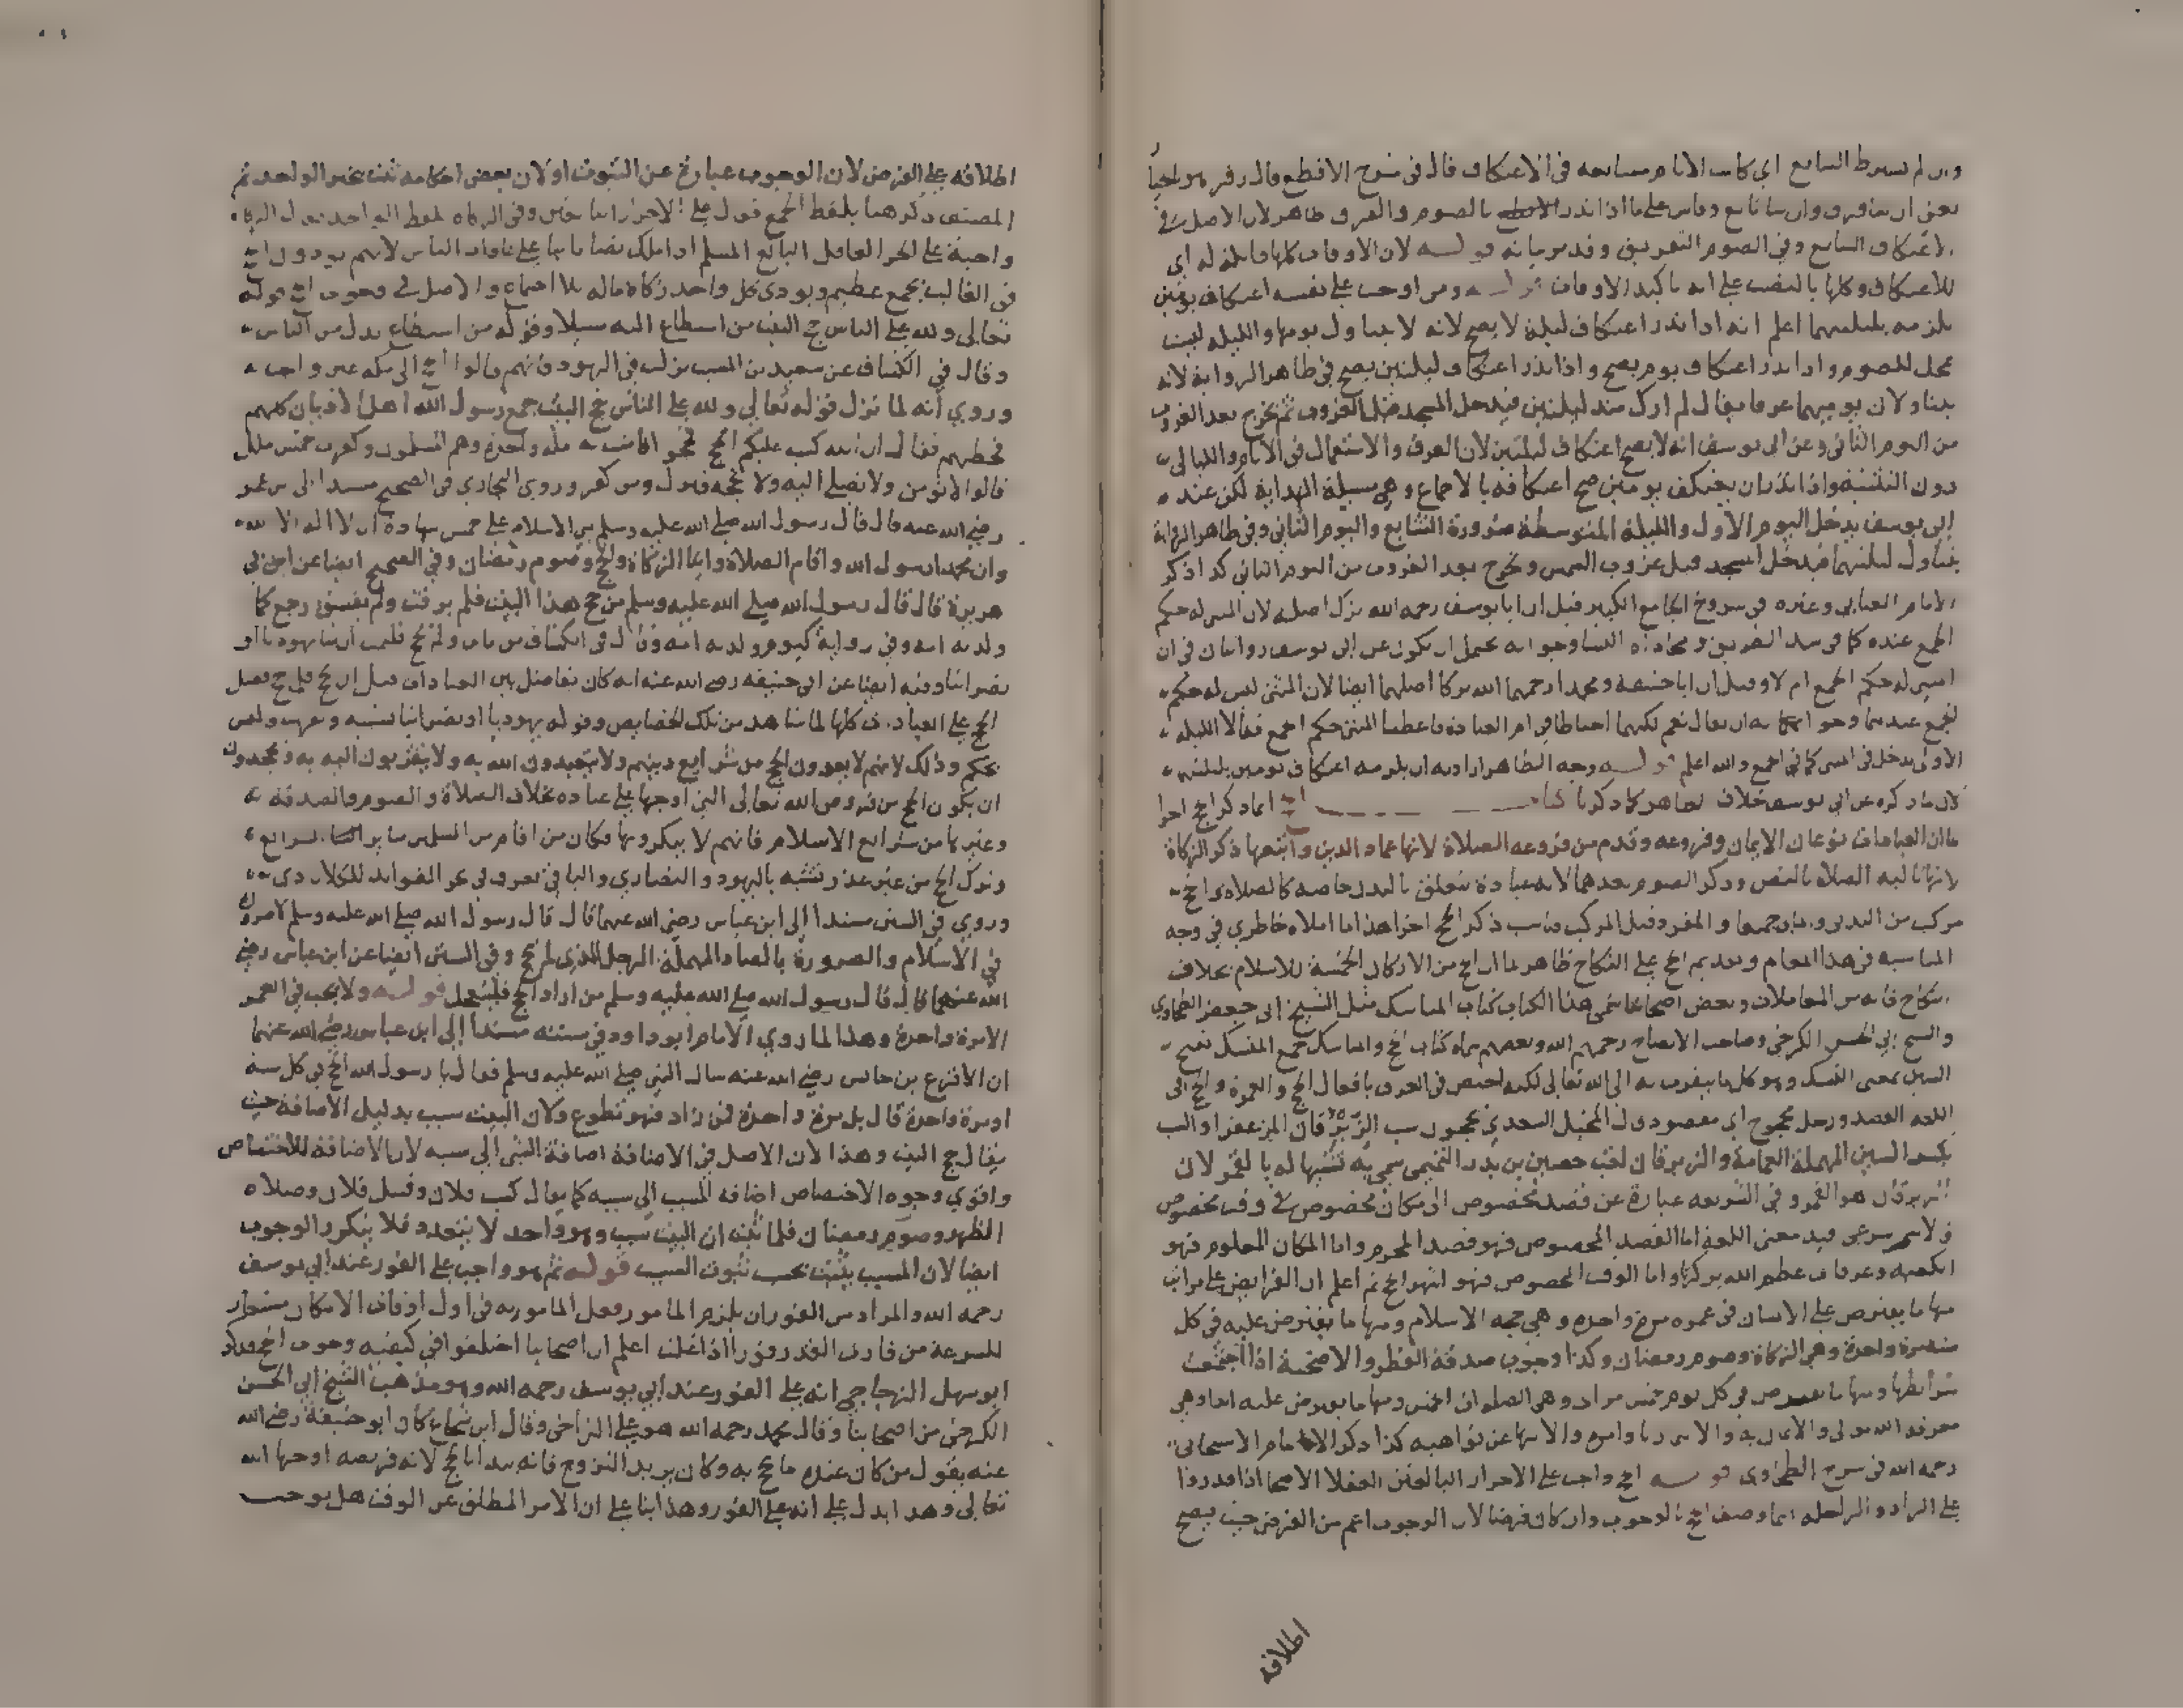 وان لم يشترط التتابع اي كانت الايام متتابعة في الاعتكاف قال في شرح الاقطع وقال زفر هو بالخيار
يعني ان شا فرق وان شا تابع وقاس على ما اذا نذر بالصوم والفرق ظاهر لان الاصل في
الاعتكاف التتابع وفي الصوم التفريق وقد مر بيانه قوله لان الاوقات كلها قابلة له اي
للاعتكاف وكلها بالنصب على انه تاكيد الاوقات قوله ومن اوجب على نفسه اعتكاف يومين
يلزمه بليلتيهما اعلم انه اذا نذر اعتكاف ليلة لا يصح لانه لا يتناول يومها والليلة ليست
محل للصوم واذا نذر اعتكاف يوم يصح واذا نذر اعتكاف ليلتين يصح في ظاهر الرواية لانه
يتناول يوميهما عرفا يقال لم ارك منذ ليلتين فيدخل المسجد قبل الغروب ثم يخرج بعد الغروب
من اليوم الثاني وعن ابي يوسف انه لا يصح اعتكاف ليلتين لان العرف والاستعمال في الايام والليالي
دون التثنية واذا نذر ان يعتكف يومين صح اعتكافه بالاجماع وهي مسيلة الهداية لكن عند
ابي يوسف يدخل اليوم الاول والليلة المتوسطة ضرورة التتابع واليوم الثاني وفي ظاهر الرواية
يتناول ليلتيهما فيدخل المسجد قبل غروب الشمس ويخرج بعد الغروب من اليوم الثاني كذا ذكر
الامام العتابي وغيره في شروح الجامع الكبير قيل ان ابا يوسف رحمه الله ترك اصله لان المثنى له حكم
الجمع عنده كما في سد الفريق ومحاذاة النسا وجوابه يحتمل ان يكون عن ابي يوسف روايتان في ان
اثنين له حكم الجمع ام لا وقيل ان ابا حنيفة ومحمدا رحمهما الله تركا اصلهما ايضا لان المثنى ليس له حكم
الجمع عندهما وجوابهما انه ان يقال نعم لكنهما احتاطا في امر العبادة فاعطيا المثنى حكم الجمع فقالا الليلة
الاولى تدخل في المثنى كما في الجمع والله اعلم قوله وجه الظاهر اراد به ان يلزمه اعتكاف يومين بليلتيهما
لان ما ذكره عن ابي يوسف خلاف الظاهر كما ذكرنا كتاب الحج انما ذكر الحج اخرا
ما ان العبادات نوعان الايمان وفروعه وقدم من فروعه الصلاة لانها عماد الدين واتبعها ذكر الزكاة
لانها ثالثة الصلاة بالنص وذكر الصوم بعدهما لانه عبادة تتعلق بالبدن خاصة كالصلاة والحج
مركب من البدن والمال جميعا والمفرد قبل المركب فناسب ذكر الحج اخرا هذا ما املاه خاطري في وجه
المناسبة في هذا المقام وتقديم الحج على النكاح ظاهر لما ان الحج من الاركان الخمسة للاسلام بخلاف
النكاح فانه من المعاملات وبعض اصحابنا سمى هذا الكتاب كتاب المناسك مثل الشيخ ابي جعفر الطحاوي
والشيخ ابي الحسن الكرخي وصاحب الايضاح رحمهم الله وبعضهم سماه كتاب الحج والمناسك جمع المنسك بفتح
السين بمعنى النسك وهو كل ما يتقرب به الى الله تعالى لكنه اختص في العرف بافعال الحج والعمرة والحج في
اللغة القصد ورجل محجوج اي مقصود قال المخبل السعدي يحجون سب الزبرقان المزعفرا والسب
بكسر السين المهملة العمامة والزبرقان لقب حصين بن بدر التميمي سمي به تشبيها له بالقمر لان
الزبرقان هو القمر وفي الشريعة عبارة عن قصد مخصوص الى مكان مخصوص في وقت مخصوص
فالاسم شرعي فيه معنى اللغة اما القصد المخصوص فهو قصد المحرم واما المكان المعلوم فهو
الكعبة وعرفات عظم الله بركتها واما الوقت المخصوص فهو اشهر الحج ثم اعلم ان الفرايض على مراتب
منها ما يفترض على الانسان في عمره مرة واحدة وهي حجة الاسلام ومنها ما يفترض عليه في كل
سنة مرة واحدة وهي الزكاة وصوم رمضان وكذا وجوب صدقة الفطر والاضحية اذا اجتمعت
شرائطها ومنها ما يفترض في كل يوم خمس مرات وهي الصلوات الخمس ومنها ما يفترض عليه ابدا وهي
معرفة الله تعالى والايمان به والايتمار باوامره والانتها عن نواهيه كذا ذكر الامام الاسبيجابي
رحمه الله في شرح الطحاوي قوله الحج واجب على الاحرار البالغين العقلا الاصحا اذا قدروا
على الزاد والراحلة انما وصف الحج بالوجوب وان كان فرضا لان الوجوب اعم من الفرض حيث يصح
اطلاقه
اطلاقه على الفرض لان الوجوب عبارة عن الثبوت او لان بعض احكامه ثبت بخبر الواحد ثم
المصنف ذكر هنا بلفظ الجمع فقال على الاحرار البالغين وفي الزكاة بلفظ الواحد فقال الزكاة
واجبة على الحر العاقل البالغ المسلم اذا ملك نصابا بنا على عادات الناس لانهم يودون الحج
في الغالب بجمع عظيم ويودي كل واحد زكاة ماله بلا اجتماع والاصل في وجوب الحج قوله
تعالى ولله على الناس حج البيت من استطاع اليه سبيلا وقوله من استطاع بدل من الناس
وقال في الكشاف عن سعيد بن المسيب نزلت في اليهود فانهم قالوا الحج الى مكة غير واجب
وروي انه لما نزل قوله تعالى ولله على الناس حج البيت جمع رسول الله اهل الاديان كلهم
فخطبهم فقال ان الله كتب عليكم الحج فحجوا فامنت به ملة واحدة وهم المسلمون وكفرت خمس ملل
قالوا لا نومن ولا نصلي اليه ولا نحجه فنزل ومن كفر وروى البخاري في الصحيح مسندا الى بن عمر
رضي الله عنه قال قال رسول الله صلى الله عليه وسلم بني الاسلام على خمس شهادة ان لا اله الا الله
وان محمدا رسول الله واقام الصلاة وايتا الزكاة والحج وصوم رمضان وفي الصحيح ايضا عن ابي
هريرة قال قال رسول الله صلى الله عليه وسلم من حج هذا البيت فلم يرفث ولم يفسق رجع كما
ولدته امه وفي رواية كيوم ولدته امه وقال في الكشاف من مات ولم يحج فليمت ان شا يهوديا او
نصرانيا وفيه ايضا عن ابي حنيفة رضي الله عنه انه كان يفاضل بين العبادات قبل ان يحج فلما حج فضل
الحج على العبادات كلها لما شاهد من تلك الخصايص وقوله يهوديا او نصرانيا تشبيه وتهديد وليس
بحكم وذلك لانهم لا يعدون الحج من شرايع دينهم ولا يتعبدون الله به ولا يتقربون اليه به ويجحدون
ان يكون الحج من فروض الله تعالى التي اوجبها على عباده بخلاف الصلاة والصوم والصدقة
وغيرها من شرايع الاسلام فانهم لا ينكرونها فكان من اقام من المسلمين سائر الشرايع
وترك الحج من غير عذر تشبه باليهود والنصارى والباقي يعرف في بحر الفوايد للكلاباذي
وروي في السنن مسندا الى ابن عباس رضي الله عنهما قال قال رسول الله صلى الله عليه وسلم لا صرورة
في الاسلام والصرورة بالصاد المهملة الرجل الذي لم يحج وفي السنن ايضا عن ابن عباس رضي
الله عنهما قال قال رسول الله صلى الله عليه وسلم من اراد الحج فليتعجل قوله ولا يجب في العمر
الا مرة واحدة وهذا لما روي الامام ابو داود في سننه مسندا الى ابن عباس رضي الله عنهما
ان الاقرع بن حابس رضي الله عنه سال النبي صلى الله عليه وسلم فقال يا رسول الله الحج في كل سنة
او مرة واحدة قال بل مرة واحدة فمن زاد فهو تطوع ولان البيت سبب بدليل الاضافة حيث
يقال حج البيت وهذا لان الاصل في الاضافة اضافة الشي الى سببه لان الاضافة للاختصاص
واقوى وجوه الاختصاص اضافة المسبب الى سببه كما يقال كسب فلان وقتل فلان وصلاة
الظهر وصوم رمضان فلما ثبت ان البيت سبب وهو واحد لا يتعدد فلا يتكرر الوجوب
ايضا لان المسبب يثبت بحسب ثبوت السبب قوله ثم هو واجب على الفور عند ابي يوسف
رحمه الله والمراد من الفور ان يلزم المامور فعل المامور به في اول اوقات الامكان مستعار
للسرعة من فارت القدر فورا اذا غلت اعلم ان اصحابنا اختلفوا في كيفية وجوب الحج فذكر
ابو سهل الزجاجي انه على الفور عند ابي يوسف رحمه الله وهو مذهب الشيخ ابي الحسن
الكرخي من اصحابنا وقال محمد رحمه الله هو على التراخي وقال ابن شجاع كان ابو حنيفة رضي الله
عنه يقول من كان عنده ما يحج به وكان يريد التزوج فانه يبدا بالحج لانه فريضة اوجبها الله
تعالى وهذا يدل على انه على الفور وهذا بنا على ان الامر المطلق عن الوقت هل يوجب